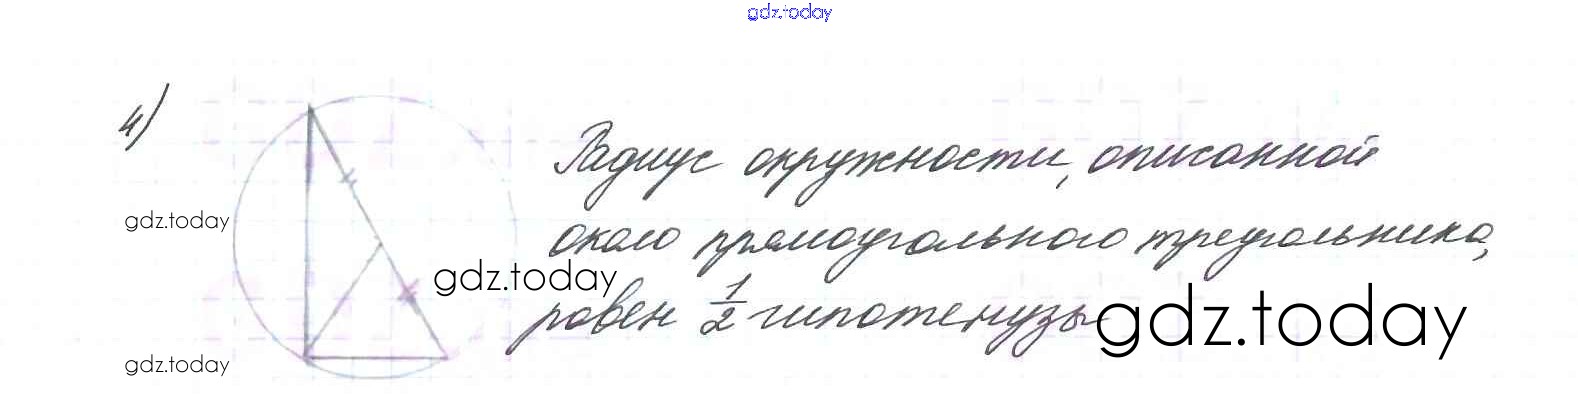 gdz.today
4)
Радиус окружности, описанной
gdz.today
около прямоугольного треугольника,
gdz.today
равен 1/2 гипотенузы
gdz.today
gdz.today